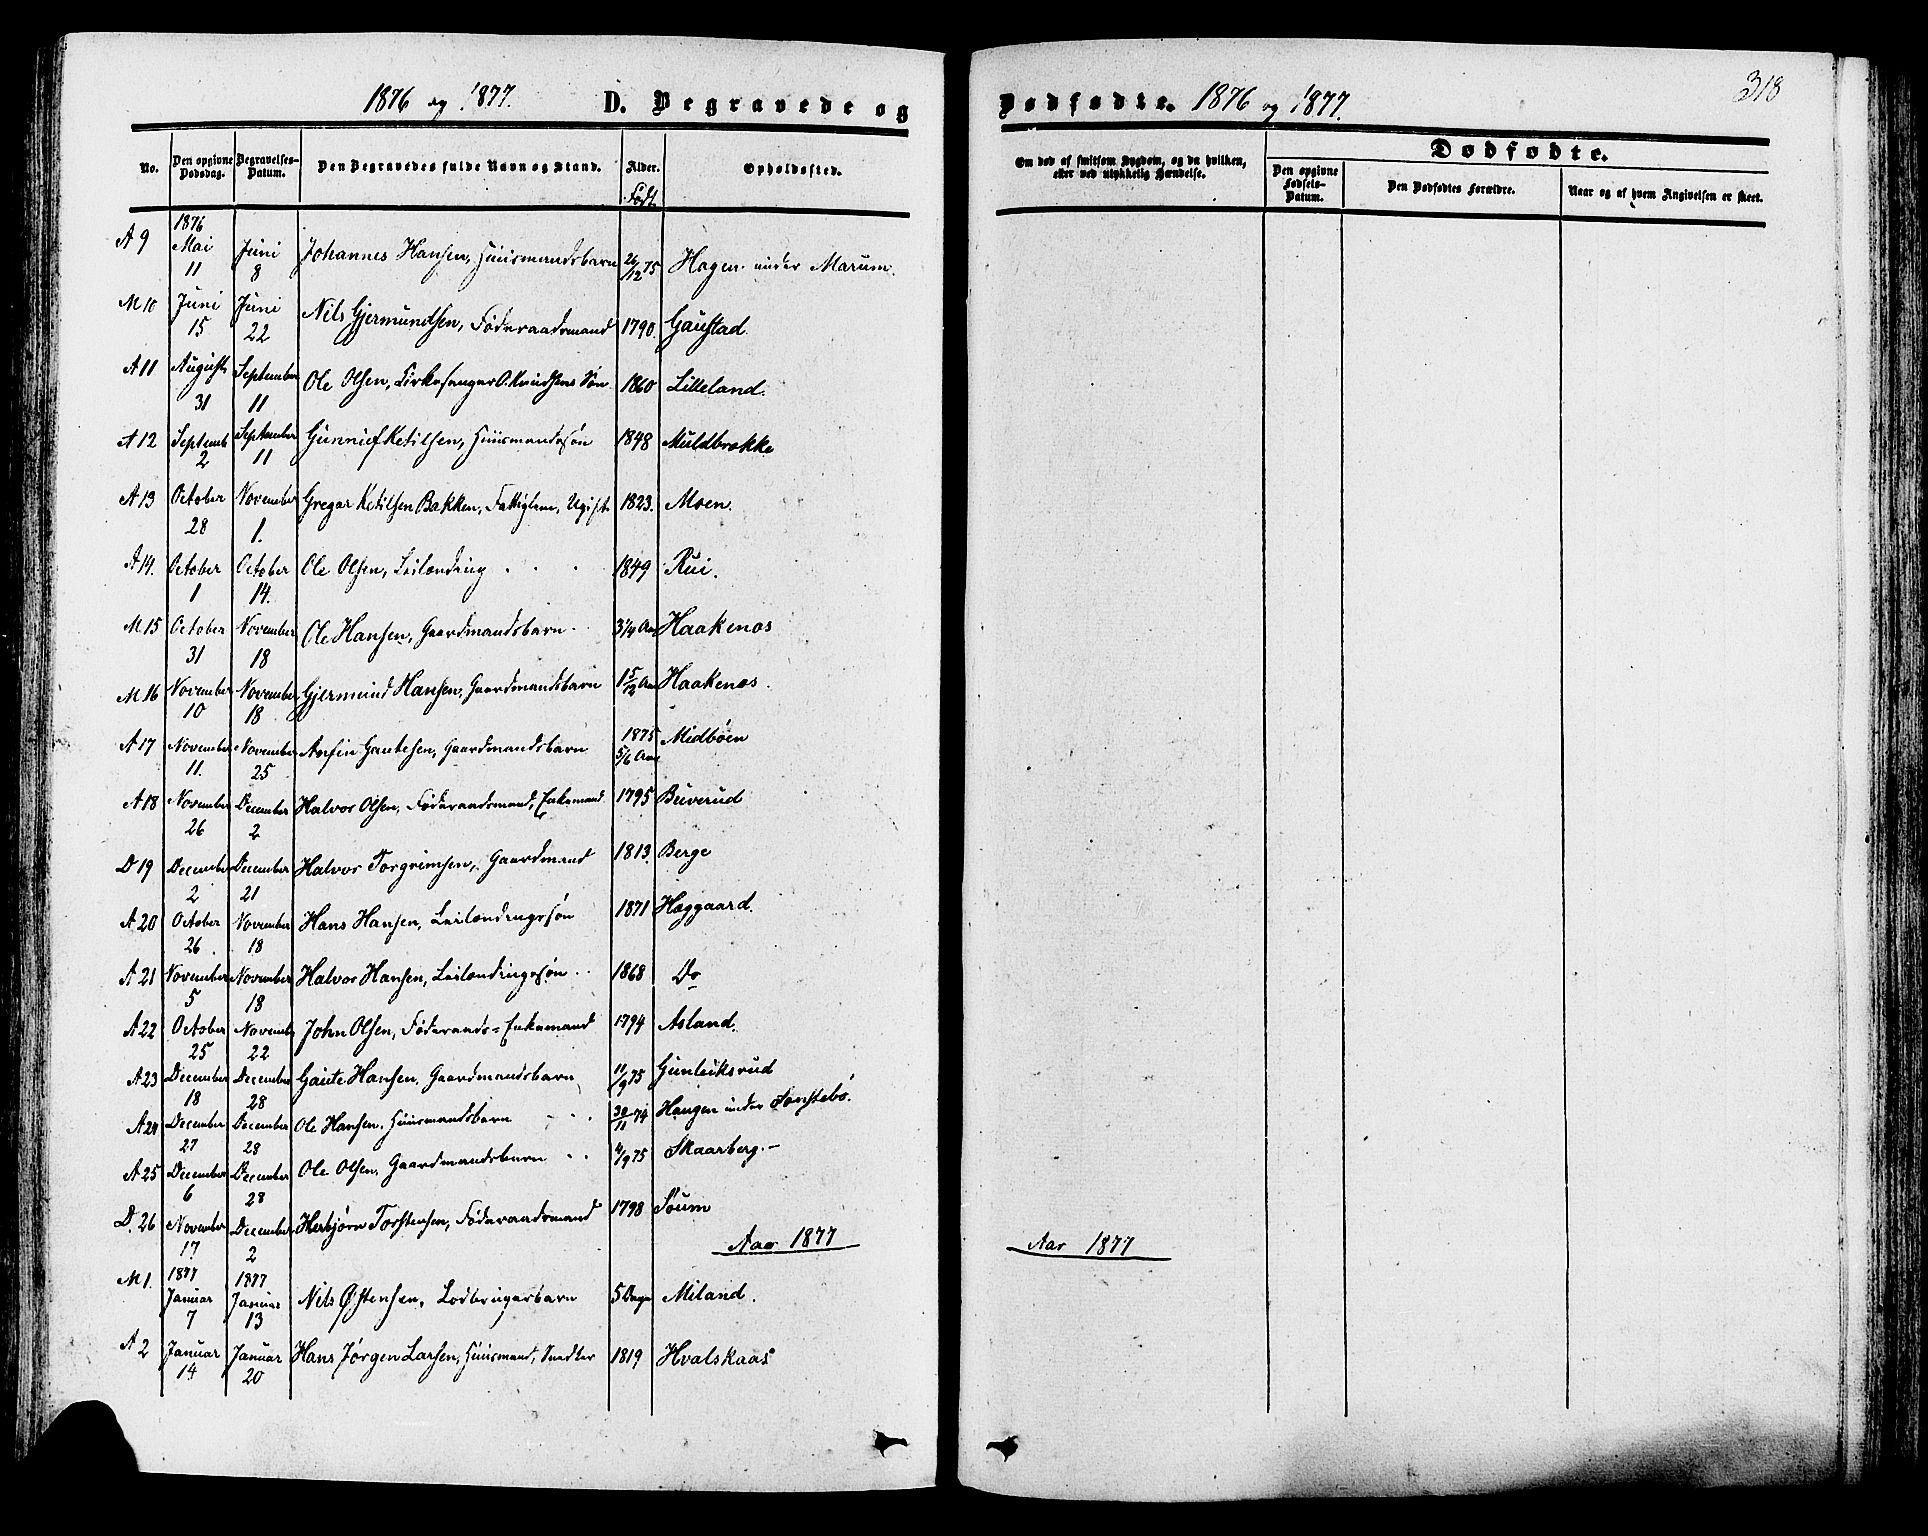 318
1876 og 1877. D. Begravede og Dødfødte. 1876 og 1877.
No. Den opgivne Dødsdag. Begravelses-Datum. Den Begravedes fulde Navn og Stand. Alder. Født Opholdssted. Om død af smitsom Sygdom, og da hvilken, eller ved ulykkelig Hændelse. Dødfødte. Den opgivne Fødsels-Datum. Den Dødfødtes Forældre. Naar og af hvem Angivelsen er skeet.
A 9 1876 Mai 11 Juni 8 Johannes Hansen, Huusmandsbarn 26/12 75 Hagen under Marum.
M 10 Juni 15 Juni 22 Nils Gjermundsen, Føderaadsmand 1790. Gaustad
A 11 August 31 September 11 Ole Olsen, Kirkesanger O. Knudsens Søn 1860 Lilleland.
A 12 Septemb 2 September 11 Gunniel Ketilsen, Huusmandssøn 1848 Muldbrække
A 13 October 28 November 1. Gregar Ketilsen Bakken, Fattiglem, Ugift 1823. Moen.
A 14. October 1 October 14. Ole Olsen, Leilænding 1849 Rui.
M 15 October 31 November 18 Ole Hansen, Gaardmandsbarn 3 1/4 Aar Haakenæs
M 16 November 10 November 18 Gjermund Hansen, Gaardmandsbarn 1 5/12 Aar Haakenæs.
A 17 November 11. November 25 Anfin Gautesen, Gaardmandsbarn 1875 5/6 Aar Midbøen
A 18 November 26 December 2 Halvor Olsen, Føderaadsmand, Enkemand 1795 Buverud
D 19 December 2 December 21 Halvor Torgrimsen, Gaardmand 1813. Berge
A 20 October 26 November 18 Hans Hansen, Leilændingssøn 1871 Hæggaard.
A 21 November 5 November 18 Halvor Hansen, Leilændingssøn 1868 Do
A 22 October 25 Novemb 22 John Olsen, Føderaads-Enkemand 1794 Asland.
A 23 December 18 December 28 Gaute Hansen, Gaardmandsbarn 11/9 75 Gunleiksrud
A 24 December 27 December 28 Ole Hansen, Huusmandsbarn 30/11 74 Haugen under Sønstebø.
A 25 December 6 December 28 Ole Olsen, Gaardmandsbarn 4/9 75 Skaarberg.
D. 26 November 17. December 2 Herbjørn Torstensen, Føderaadsmand 1798 Søum
Aar 1877 Aar 1877
M 1. 1877 Januar 7 1877 Januar 13 Nils Østensen, Lodbrugerbarn 5 Dage Miland.
A 2 Januar 14 Januar 20 Hans Jørgen Larsen, Huusmand, Snedker 1819 Hvalskaas